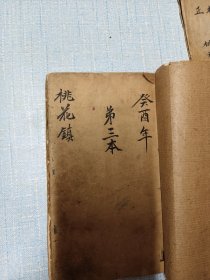 癸酉年
第三本
桃花鎮